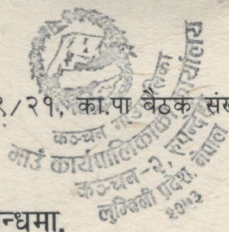 ९/२१, का.पा बैठक सं
कञ्चन गाउँपालिका
गाउँ कार्यपालिकाको कार्यालय
कञ्चन-२, रुपन्देही
लुम्बिनी प्रदेश, नेपाल
२०७३
न्धमा.